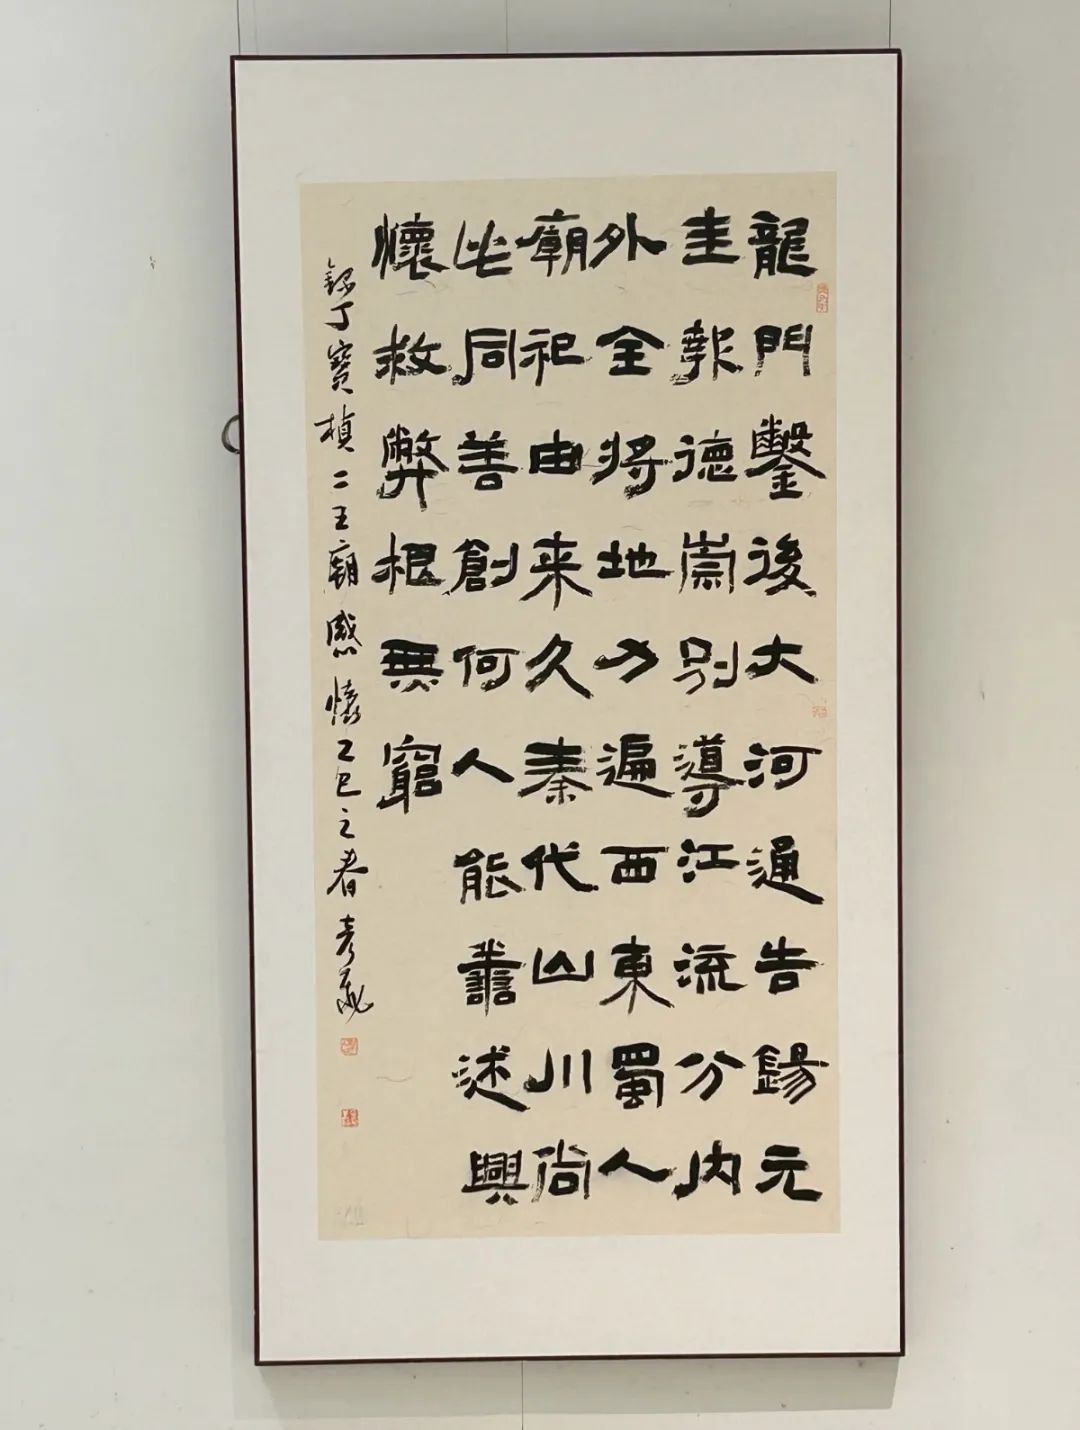 龍門鑿後大河通告錫元
圭報德崇別導江流分内
外全將地力遍西東蜀人
廟祀由来久秦代山川尚
此同善創何人能譱述興
懷救弊根無窮
録丁寶楨二王廟感懷乙巳之春